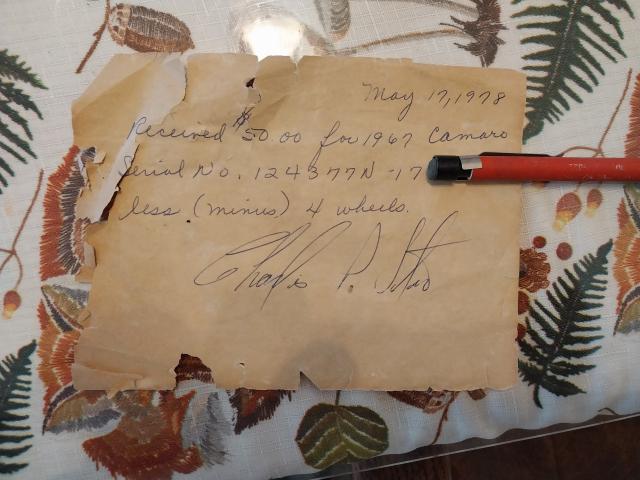 May 17, 1978
Received $50.00 for 1967 Camaro
Serial No. 124377N-17
less (minus) 4 wheels.
P.